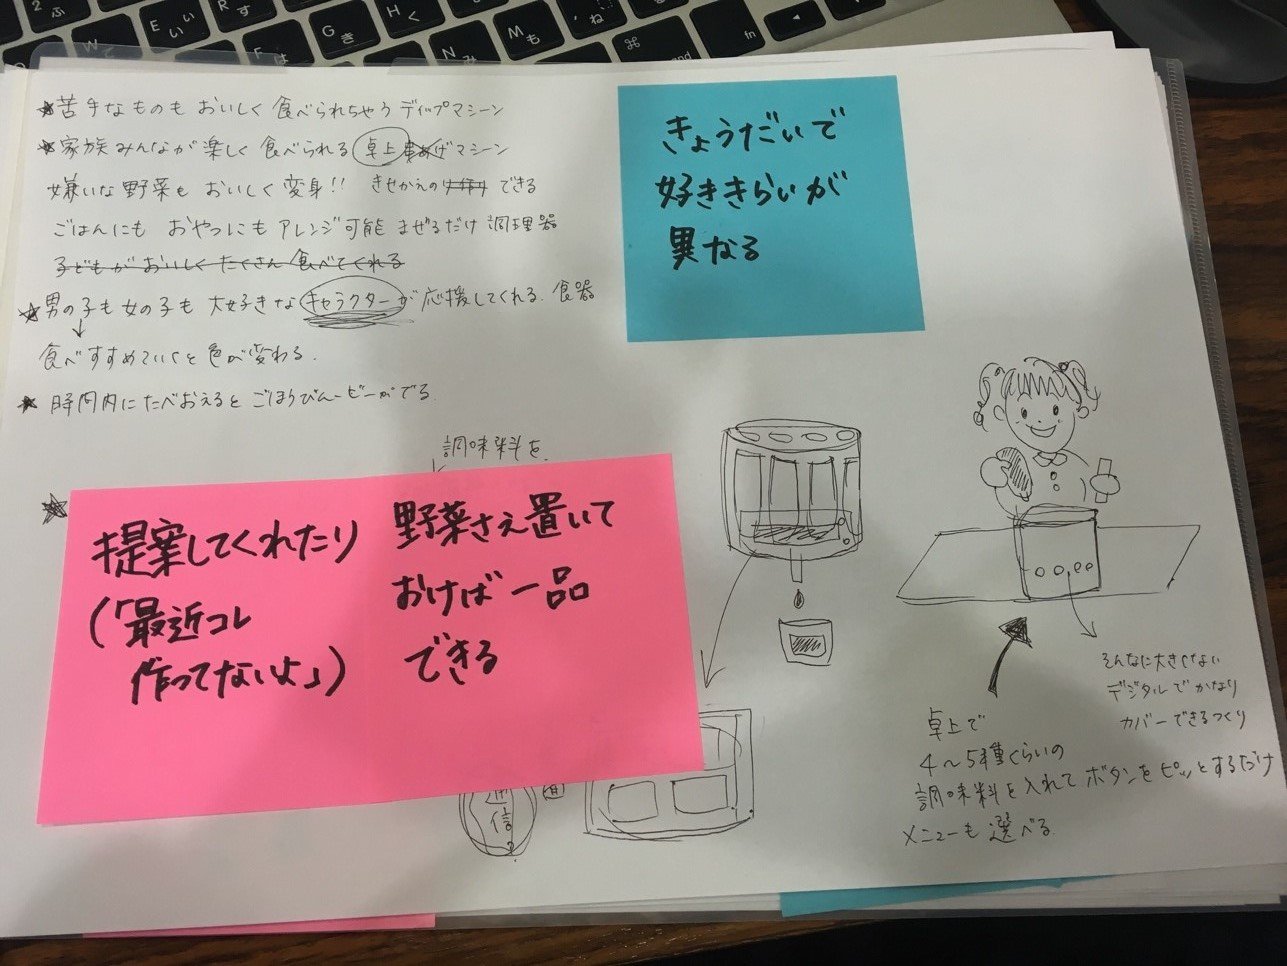 ★苦手なものもおいしく食べられちゃうディップマシーン
★家族みんなが楽しく食べられる卓上串あげマシーン
嫌いな野菜もおいしく変身!! きせかえの できる
ごはんにも おやつにも アレンジ可能 まぜるだけ 調理器
子どもがおいしくたくさん食べてくれる
★男の子も女の子も 大好きなキャラクターが応援してくれる 食器
↓
食べすすめていくと色が変わる.
★ 時間内にたべおえると ごほうびムービーがでる
きょうだいで
好ききらいが
異なる
調味料を
★
提案してくれたり
(「最近コレ
作ってないよ」)
野菜さえ置いて
おけば一品
できる
通信?
そんなに大きくない
デジタルでかなり
カバーできるつくり
卓上で
4〜5種くらいの
調味料を入れてボタンをピッとするだけ
メニューも選べる
2 ふ
W て
E い ぃ
R す
F は
G き
H く
N み
M も
, 、 ね
⌘
fn